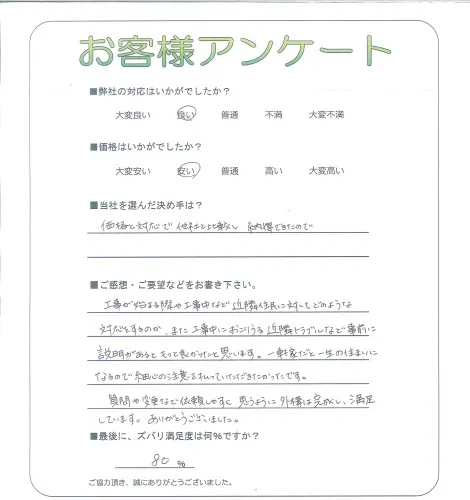 お客様アンケート
■弊社の対応はいかがでしたか？
大変良い 良い 普通 不満 大変不満
■価格はいかがでしたか？
大変安い 安い 普通 高い 大変高い
■当社を選んだ決め手は？
価格と対応で他社と比較し納得できたので
■ご感想・ご要望などをお書き下さい。
工事が始まる際や工事中など近隣住民に対してどのような
対応をするのか、また工事中におこりうる近隣トラブルなど事前に
説明があるともっと良かったと思います。一軒家だと一生の住まいに
なるので細心の注意を払っていただきたかったです。
質問や変更など依頼しやすく思うように外構は完成し、満足
しています。ありがとうございました。
■最後に、ズバリ満足度は何％ですか？
80 %
ご協力頂き、誠にありがとうございました。